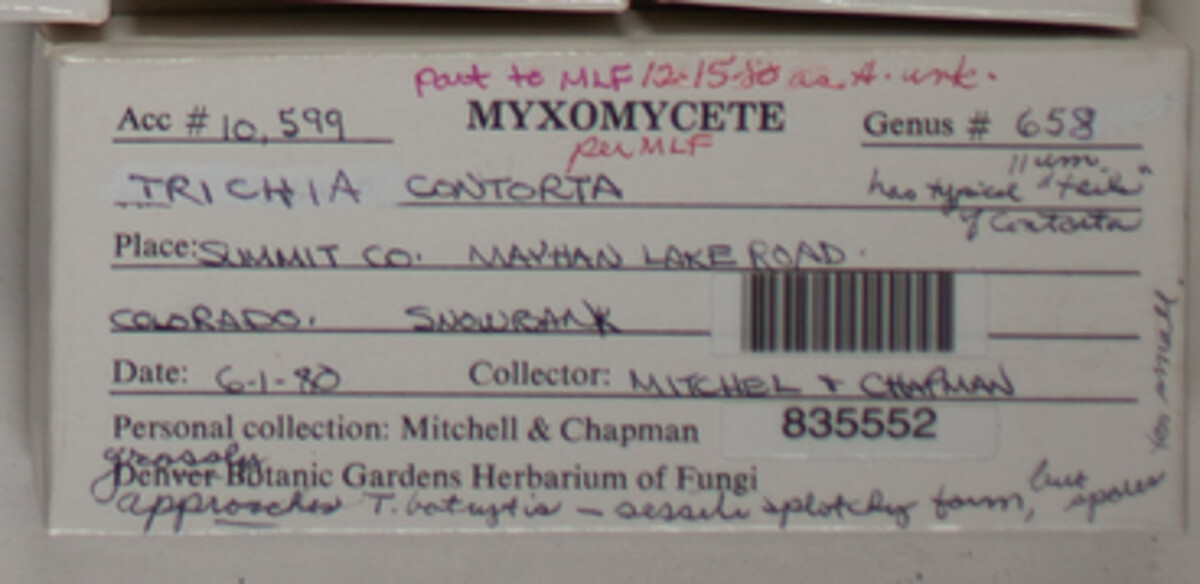 part to MLF 12-15-80 as A. unk.
Acc # 10,599 MYXOMYCETE Genus # 658
per MLF 11 um.
TRICHIA CONTORTA has typical "tails"
of Contorta
Place: SUMMIT CO. MAYHAN LAKE ROAD.
COLORADO. SNOWBANK
Date: 6-1-80 Collector: MITCHEL & CHAPMAN
Personal collection: Mitchell & Chapman 835552
grossly
Denver Botanic Gardens Herbarium of Fungi
approaches T. botrytis - sessile splotchy form, but spores
too small.